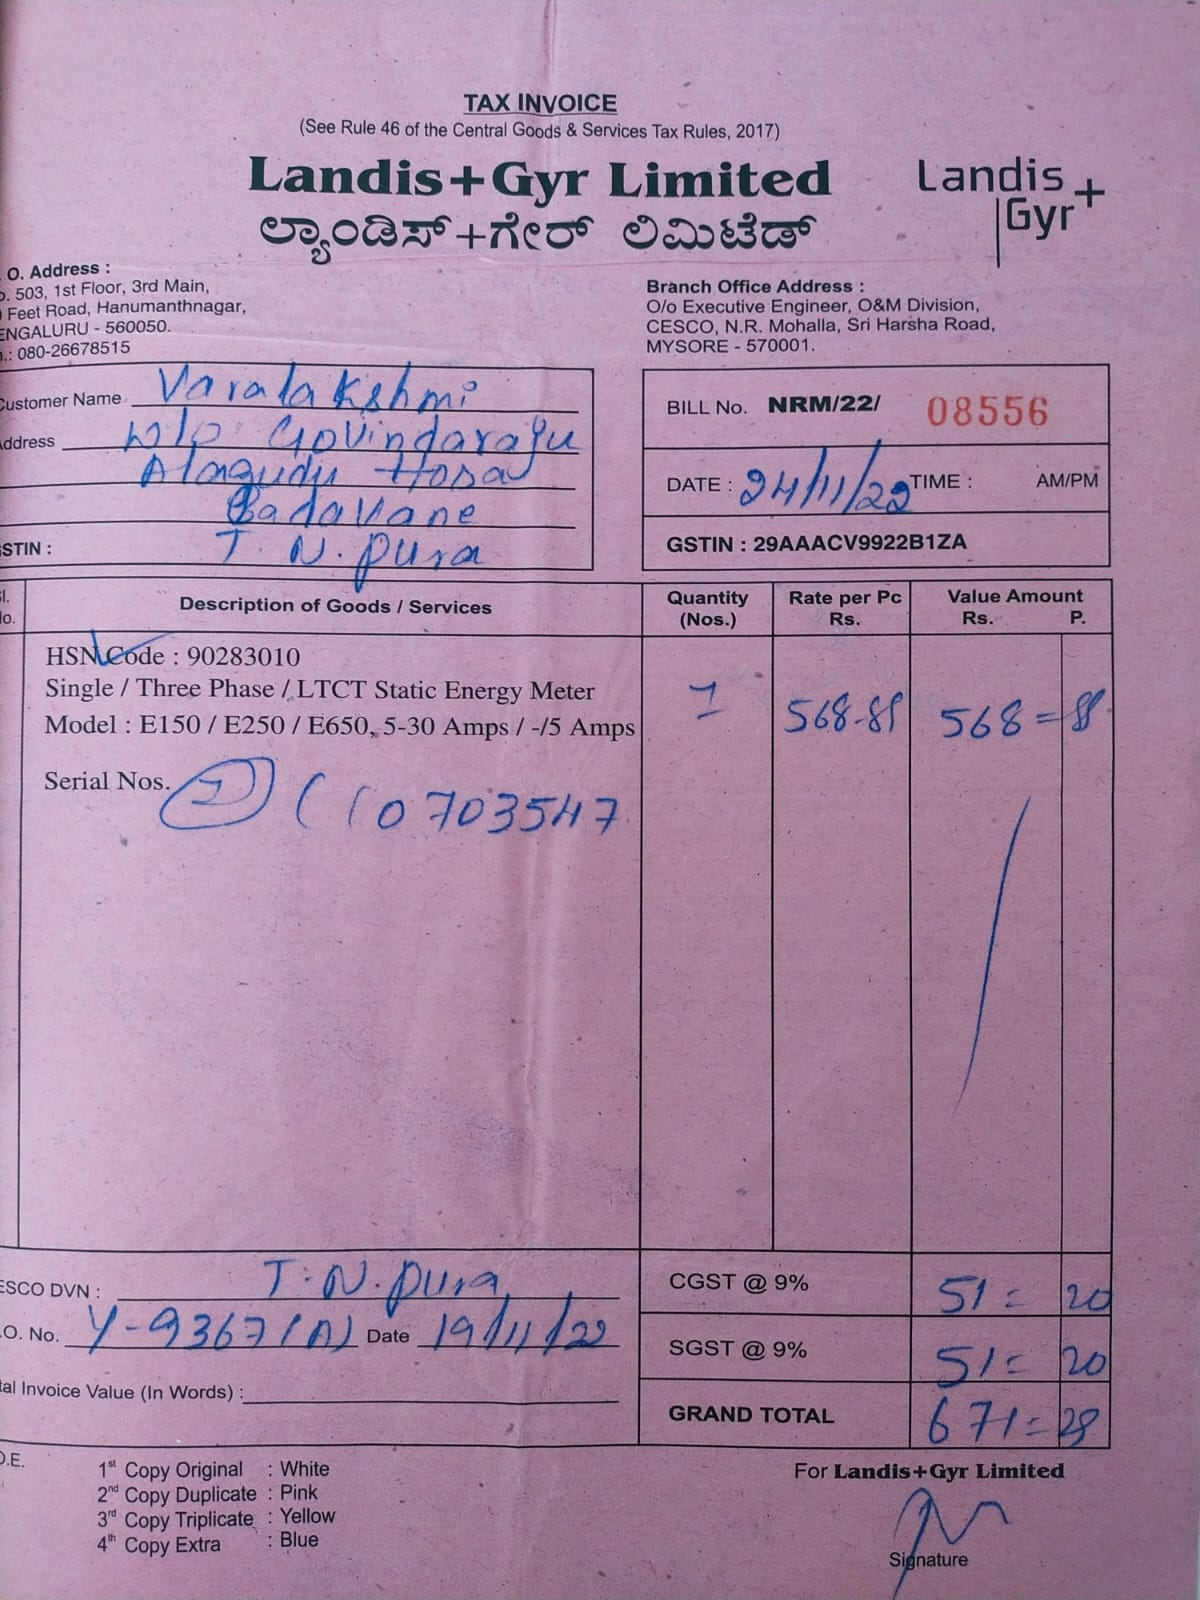 TAX INVOICE
(See Rule 46 of the Central Goods & Services Tax Rules, 2017)
Landis+Gyr Limited
ಲ್ಯಾಂಡಿಸ್+ಗೇರ್ ಲಿಮಿಟೆಡ್
Landis
Gyr+
O. Address :
503, 1st Floor, 3rd Main,
Feet Road, Hanumanthnagar,
ENGALURU - 560050.
080-26678515
Branch Office Address :
O/o Executive Engineer, O&M Division,
CESCO, N.R. Mohalla, Sri Harsha Road,
MYSORE - 570001.
Customer Name Varalakshmi
Address W/o Govindaraju
Alagudu Hosa
Badavane
GSTIN : T. N. pura
BILL No. NRM/22/ 08556
DATE : 24/11/22 TIME : AM/PM
GSTIN : 29AAACV9922B1ZA
Sl. No. Description of Goods / Services Quantity (Nos.) Rate per Pc Rs. Value Amount Rs. P.
HSN Code : 90283010
Single / Three Phase / LTCT Static Energy Meter
Model : E150 / E250 / E650, 5-30 Amps / -/5 Amps
1 568-88 568=88
Serial Nos. 07703547
ESCO DVN : T. N. pura
O. No. Y-9367(A) Date 19/11/22
tal Invoice Value (In Words) :
CGST @ 9% 51= 20
SGST @ 9% 51= 20
GRAND TOTAL 671= 28
O.E.
1st Copy Original : White
2nd Copy Duplicate : Pink
3rd Copy Triplicate : Yellow
4th Copy Extra : Blue
For Landis+Gyr Limited
Signature